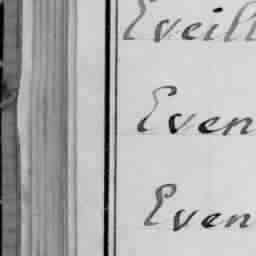 Eveill
Even
Even